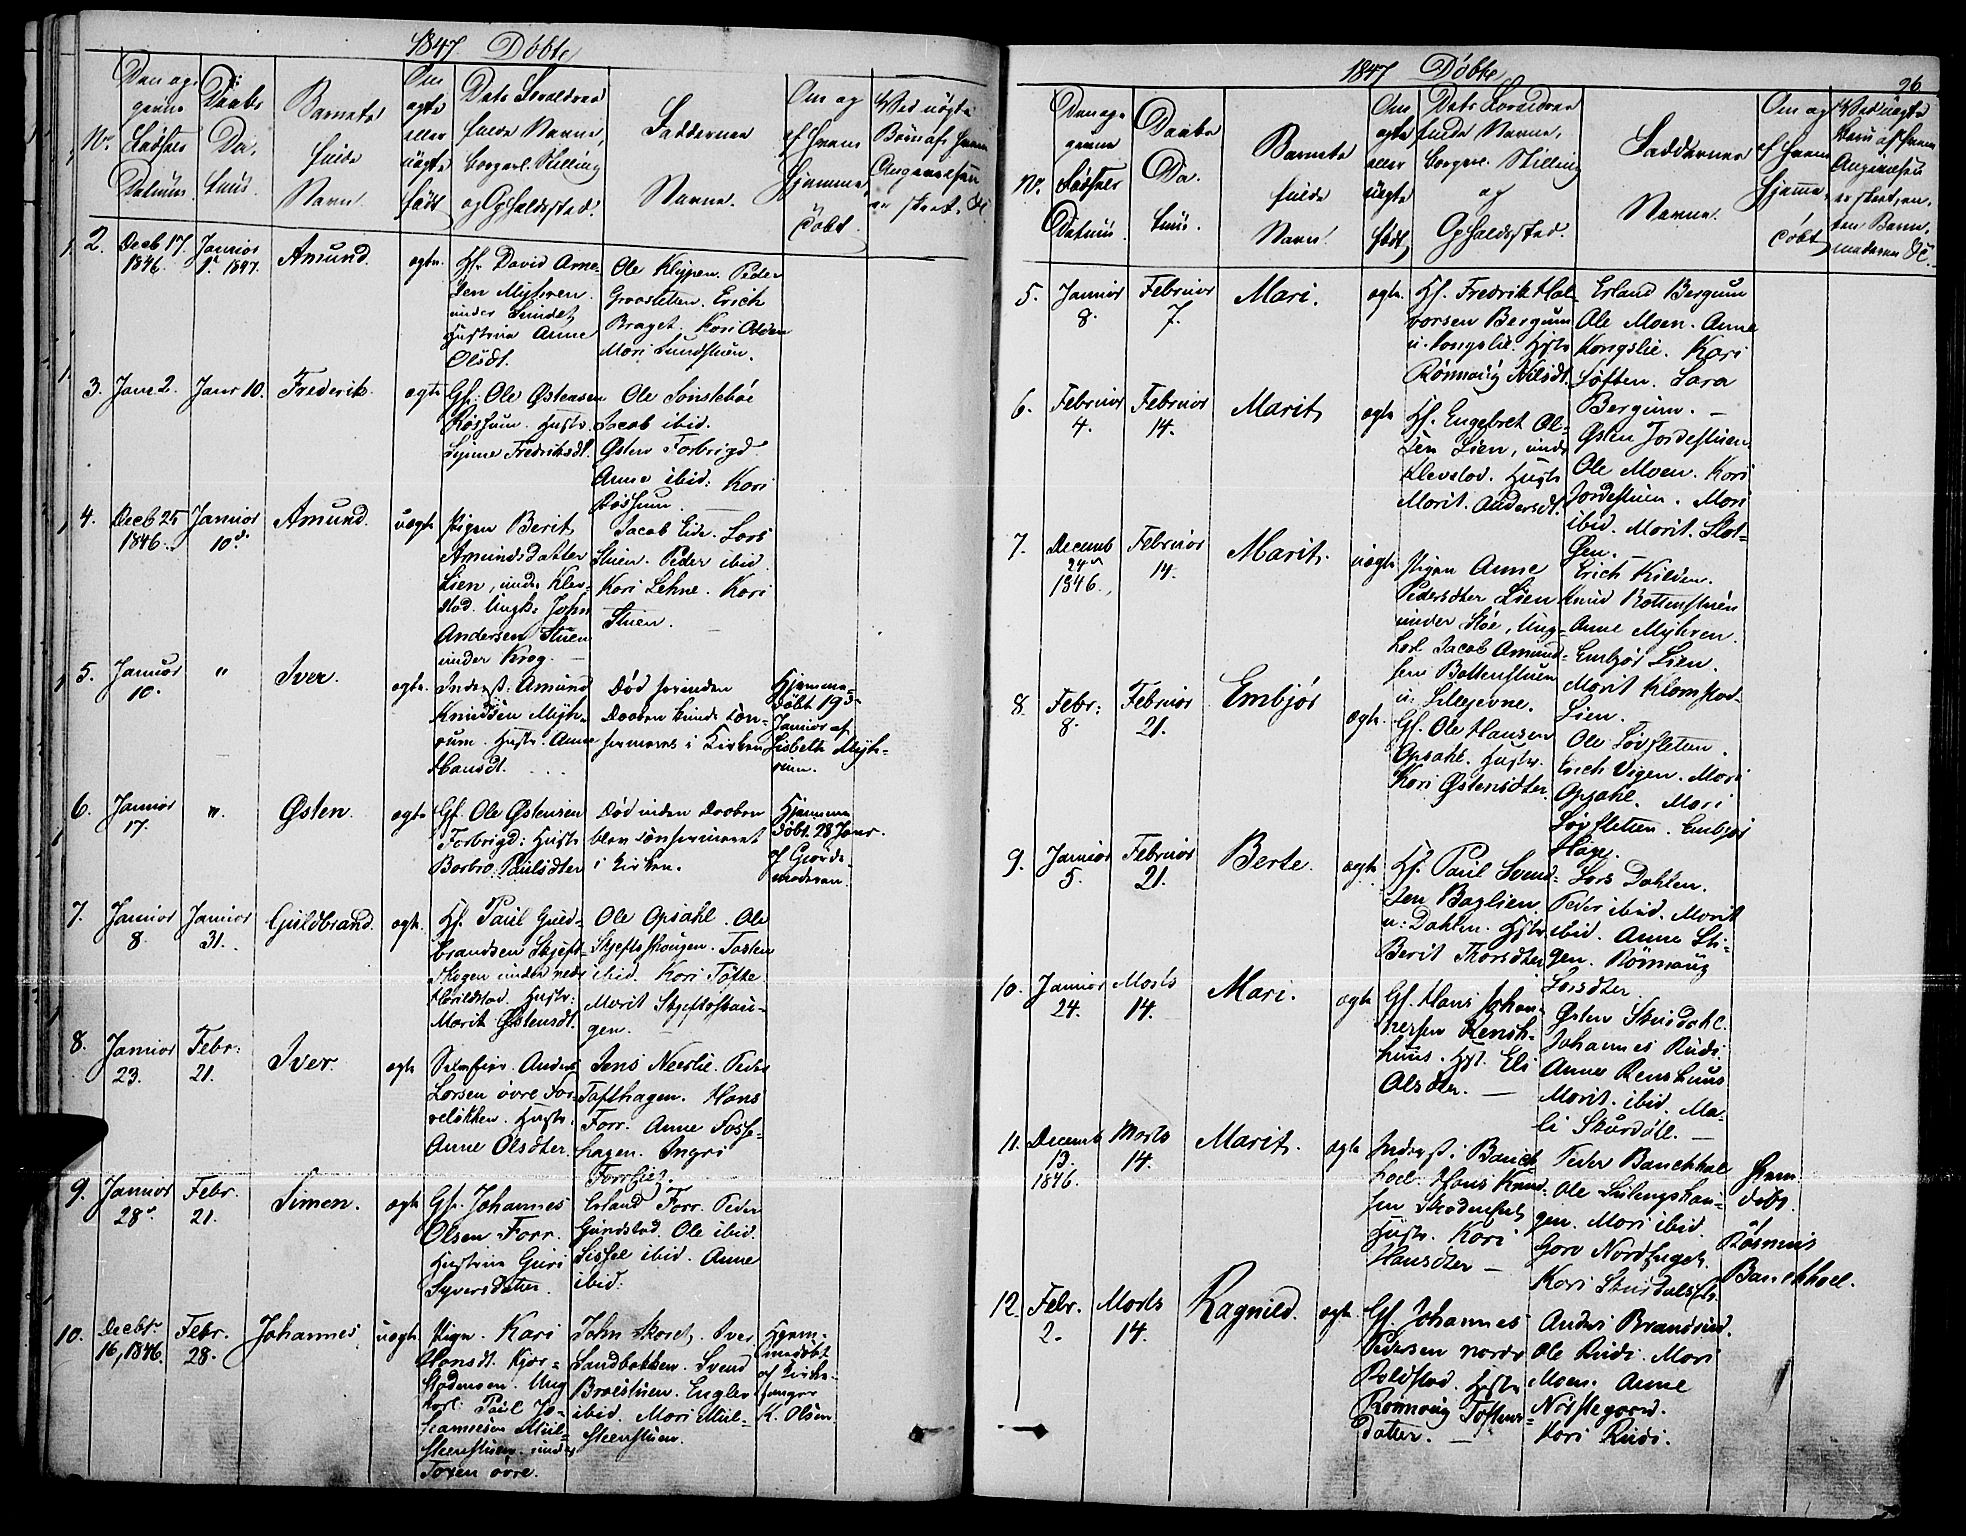 1847 Döbte
No.
Den op-
givne
Fødsels
Datum
Daabs
Da-
tum.
Barnets
fulde
Navn.
Om
ægte
eller
uægte
født
Dets Forældres
fulde Navne,
borgerl. Stilling
og Opholdssted.
Faddernes
Navne.
Om og
af hvem
hjemme-
döbt
Ved uægte
2. Decb 17. 1846. Januar 1. 1847. Amund. ægte.
Gf. David Arne-
sen Myhren
under Sundet
Hustrue Anne
Olsdt.
Ole Klypen. Peder
Graasletten. Erich
Braget. Kari
Mari Sundstuen.
3. Janr 2. Janr 10. Frederik. ægte
Gf. Ole Østensen
Røssum. Hustr.
Synne Fredriksdt.
Ole Sønsteböe
Jacob ibid.
Østen Forbrigd.
Anne ibid. Kari
Røssum.
4. Decb 25 1846. Januar 10. Amund. uægte
Pigen Berit
Amundsdatter
Lien, under Klev-
stad. Ungk. John
Andersen Stuen
under Krog.
Jacob Eide. Lars
Stuen. Peder ibid
Kari Lehne. Kari
Stuen.
5. Januar 10. " Iver. ægte.
Inderst. Amund
Knudsen Myh-
rum. Hustr. Anne
Hansdt.
Død forinden
Daaben kunde con-
firmeres i Kirken
Hjemme-
döbt 19de
Januar af
Lisbeth Myh-
rum.
6. Januar 17. " Østen. ægte
Gf. Ole Østensen
Forbrigd. Hustr.
Barbro Paulsdtter
Død inden Daaben
blev confirmeret
i Kirken.
Hjemme
döbt 28 Janr.
af Giorde-
moderen.
7. Januar 8. Januar 31. Guldbrand. ægte.
Hf. Paul Guld-
brandsen Skjefte
skogen under nedr
Harildstad. Hustr.
Marit Østensdt.
Ole Opsahl. Ole
Skjefteskougen. Torsten
ibid. Kari Tofte
Marit Skjefteskou-
gen.
8. Januar 23. Febr. 21. Iver. ægte
Selveier Anders
Larsen øvre For-
veløkken. Hustr.
Anne Olsdtter.
Jens Neerlie. Peder
Tofthagen. Hans
Forr. Anne Fosse-
hagen. Ingri
9. Januar 28. Febr. 21. Simen. ægte
Gf. Johannes
Olsen Forr.
Hustrue Guri
Syversdatter.
Erland Forr. Peder
Gundstad. Ole ibid.
Sissel ibid. Anne
ibid.
10. Decbr. 16, 1846. Febr. 28. Johannes. uægte
Pigen. Kari
Hansdt. Kjør-
stadmoen. Ung
karl. Paul Jo-
hannesen Mül-
steenstuen under
Toxen øvre.
John Skoret. Iver
Sandbakken. Svend
Bræstuen. Engler
ibid. Mari Mül-
steenstuen.
Hjem-
medöbt
af Kirke-
sanger
K. Olsen
1847 Döbte
26
No.
Den op-
givne
Fødsels
Datum
Daabs
Da-
tum.
Barnets
fulde
Navn.
Om
ægte
eller
uægte
født
Dets Forældres
fulde Navne,
borgerl. Stilling
og
Opholdssted.
Faddernes
Navne.
Om og
af hvem
hjemme-
döbt
Ved uægte
Børn af hvem
Angivelsen
er skeet, en-
ten Barne-
moderen &c.
5. Januar 8. Februar 7. Mari. ægte.
Hf. Fredrik Hal-
vorsen Bergum
u. Kongslie. Hustr
Rønnaug Nilsdt.
Erland Bergum
Ole Moen. Anne
Kongslie. Kari
Løften. Sara
Bergum.
6. Februar 4. Februar 14. Marit. ægte
Hf. Engebret Ol-
sen Lien, under
Klevstad. Hustr
Marit. Andersdt.
Østen Jordestuen
Ole Moen. Kari
Jordestuen. Mari
ibid. Marit. Slot-
7. Decemb 24 1846. Februar 14. Marit. uægte
Pigen Anne
Pedersdter Lien
under Støe, Ung-
karl Jacob Amund-
sen Bottenstuen
u. Lillejevne.
Erich Kilden.
Knud Bottenstuen
Anne Myhren.
Embjør Lien.
Marit Klomstad-
Lien.
8. Febr: 8. Februar 21. Embjør ægte.
Gf. Ole Hansen
Opsahl. Hustr.
Kari Østensdtter.
Ole Løvsletten.
Erich Vigen. Mari
Opsahl. Mari
Løvsletten. Embjør
Hage.
9. Januar 5. Februar 21. Berte. ægte
Hf. Paul Svend-
sen Baglien
u. Dahlen. Hustr
Berit Thorsdtter
Lars Dahlen.
Peder ibid. Marit
ibid. Anne Sti-
gen. Rønnaug
Larsdter
10. Januar 24. Marts 14. Mari. ægte
Gf. Hans Johan-
nessen Rensh-
huus. Hust. Eli
Olsdtter.
Østen Skurdahl.
Johannes Rudi
Anne Renshuus
Marit. ibid. Ma-
li Skurdall.
11. Decemb 13 1846. Marts 14. Marit. ægte
Inderst i Bauck-
hoel. Hans Knud-
sen
Hustr. Kari
Hansdtter
Peder Bauckhoel
gen. Mari ibid.
Goro Nordhuget.
Hjem
döbt
af
Rasmus
Bauckhoel.
12 Febr. 2. Marts 14. Ragnild. ægte.
Gf. Johannes
Pedersen nordr
Roldstad. Hustr
Rønnaug Tosten-
datter.
Anders Brandrud.
Ole Rudi. Mari
Moen. Anne
Nørstegaard.
Kari Rudi.